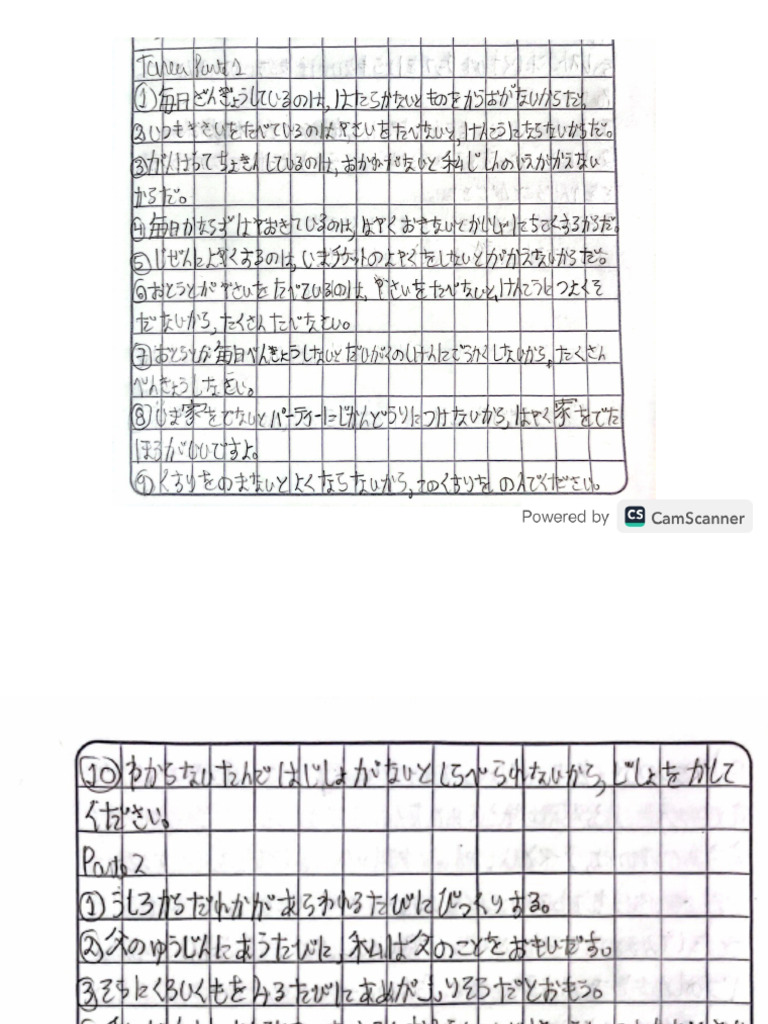 Tarea Parte 1
①毎日ざんぎょうしているのは、はたらかないとものをからおがないからだ。
②いつもやさいをたべているのはやさいをたべないと、けんこうにならないからだ。
③がんばってちょきんしているのは、おかねがないと私じしんのいえがかえない
からだ。
④毎日かならずはやおきているのは、はやくおきないとかいしゃにちこくするからだ。
⑤じぜんによやくするのは、いまチケットのよやくをしないとがかえないからだ。
⑥おとうとがやさいをたべているのは、やさいをたべないと、けんこうにつよくそ
だたないから、たくさんたべなさい。
⑦おとうとが毎日べんきょうしないとだいがくのしけんにごうかくしないから、たくさん
べんきょうしなさい。
⑧いま家をでないとパーティーにじかんどうりにつけないから、はやく家をでた
ほうがいいですよ。
⑨くすりをのまないとよくならないから、このくすりをのんでください。
Powered by CS CamScanner
⑩わからないたんごはじしょがないとしらべられないから、じしょをかして
ください。
Parte 2
①うしろからだれかがあらわれるたびにびっくりする。
②父のゆうじんにあうたびに、私は父のことをおもいだす。
③そらにくろいくもをみるたびにあめがふりそうだとおもう。